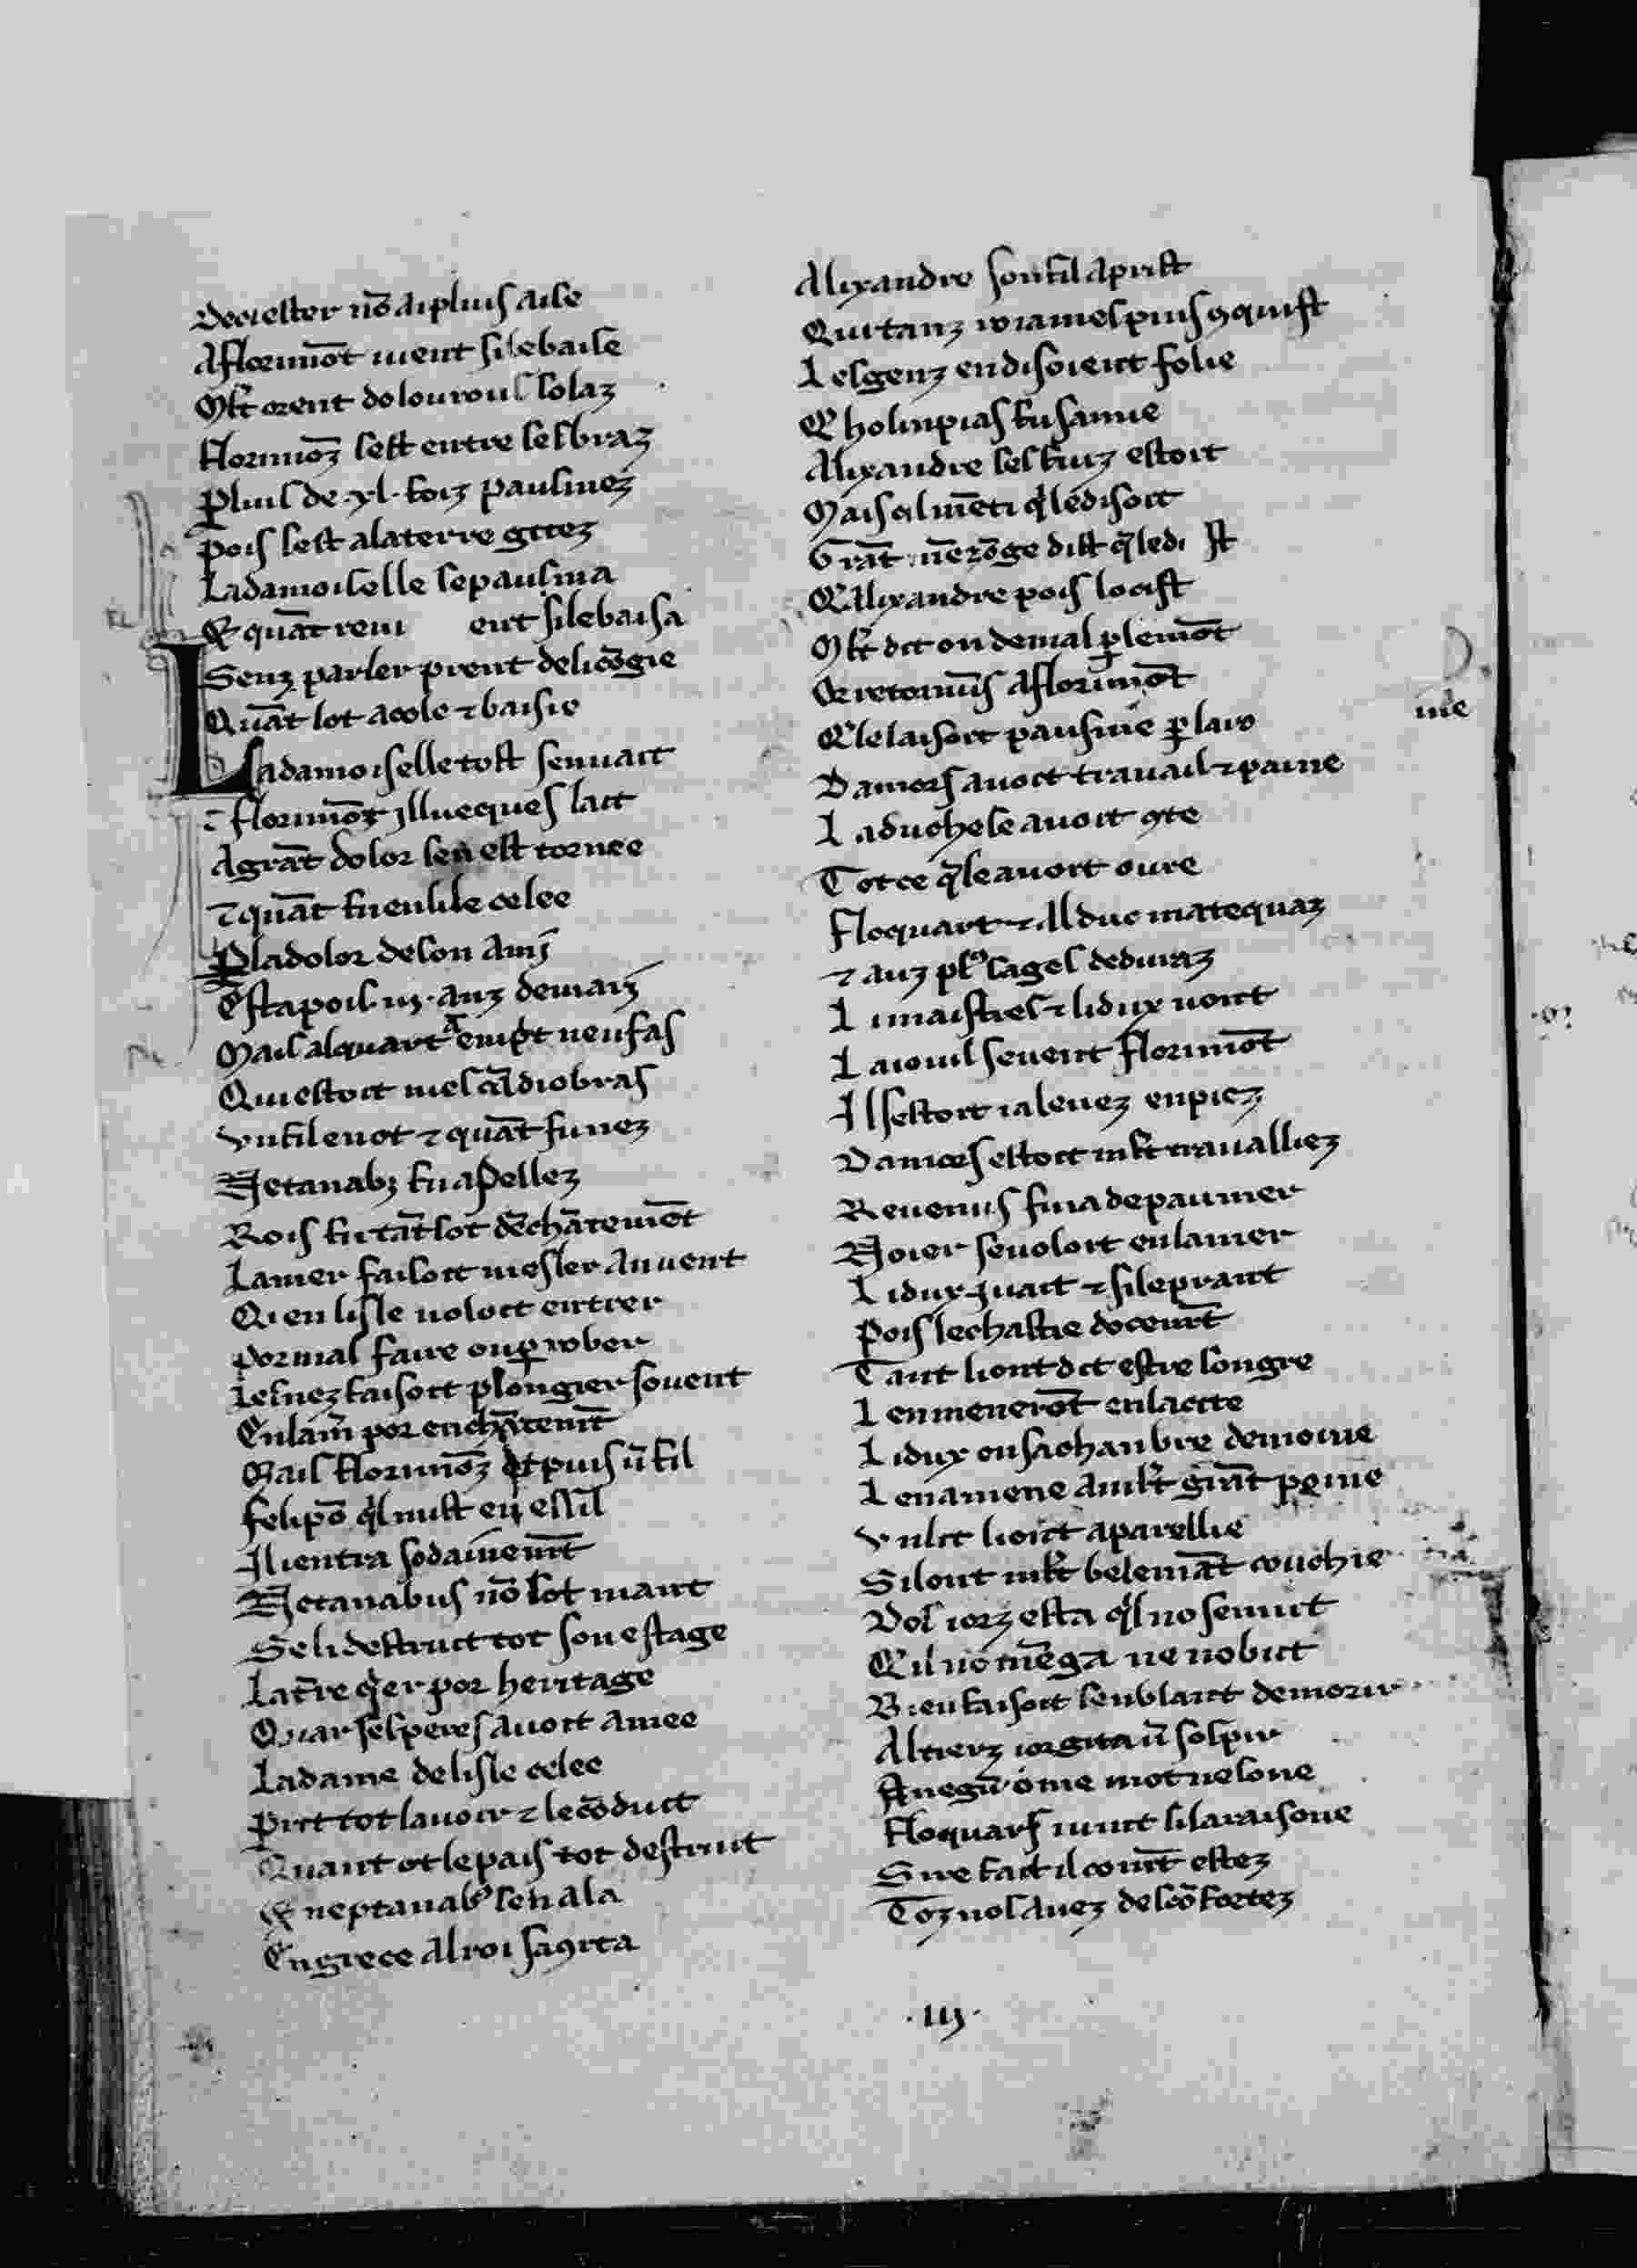 Decie ester nō ai pluis aise
A florimōt uient si le baise
Mlt orent dolourous solaz
Florimōz sest entre ses braz
Pluis de .xl. foiz pausmez
Pois sest a la terre gitez
La damoiselle se pausma
Et quāt reui ent si le baisa
Senz parler prent de li cōgie
Quāt lot acole ⁊ baisie
La damoiselle tost sen uait
⁊ florimōz illueques lait
A grāt dolor sen est tornee
⁊ quāt fu en lisle celee
P̱ la dolor de son ami
Esta pois .iij. anz demi
Mais al quart a enipt neufas
Qui estoit mes cāldiobras
Vn fil en ot ⁊ quāt fu nez
Netanabꝫ fu apellez
Rois fu tāt sot dēchātemēt
La mer faisoit mesler au uent
Qi en lisle uoloit entrer
Por mal faire ou ꝑ rober
Les nez faisoit plongier souent
En la m̄ por enchātemt̄
Mais florimōz ot puis ū fil
Felipō q̄l mist en essil
Il i entra sodainemt̄
Netanabus nō sot niant
Se li destruit tot son estage
La t̄re q̄er por heritage
Quar ses peres auoit amee
La dame de lisle celee
Prit tot lauoir ⁊ le cōduit
Quant ot le pais tot destruit
Et neptanabꝰ sen ala
En grece al roi saqita
Alixandre son fil aprist
Qui tanz roiames puis ꝯquist
Les genz en disoient folie
Q holinpias fu samie
Alixandre ses fiuz estoit
Mais cil mēti q̄ le disoit
Grāt mēzōge dist q̄ le di st
Q Alixandre pois locist
Mlt dit on de mal ꝑ le mōt
Or retornūs a florimōt
Q le laisoit pausme ꝑ laiv
Damors auoit trauail ⁊ paine
La duchese auoit ꝯte
Tot ce q̄le auoit oure
Floquart ⁊ al duc mataquaz
⁊ auz plꝰ sages de duraz
Li maistres ⁊ li dux uont
La iouil seuent florimōt
Il sestoit ia leuez en piez
Damors estoit mlt trauailliez
Reuenus fu ia de paumer
Noier se uoloit en la mer
Li dux i uait ⁊ si le prant
Pois le chastie docemt̄
Tant li ont dit estre son gre
Len menerōt en la cite
Li dux en sa chanbre demoine
Len amene a mlt grāt poine
Vn lit li ont aparellie
Si lont mlt belemāt couchie
Dos iorz esta q̄l no semut
Q il no mēga ne no but
Bien faisoit senblant de morir
Al tierz ior gita ū sospir
A negū ome mot ne sone
Floquars i uint si laraisone
Sire fait il comt̄ estez
Toz nos auez descōfortez
.iij.